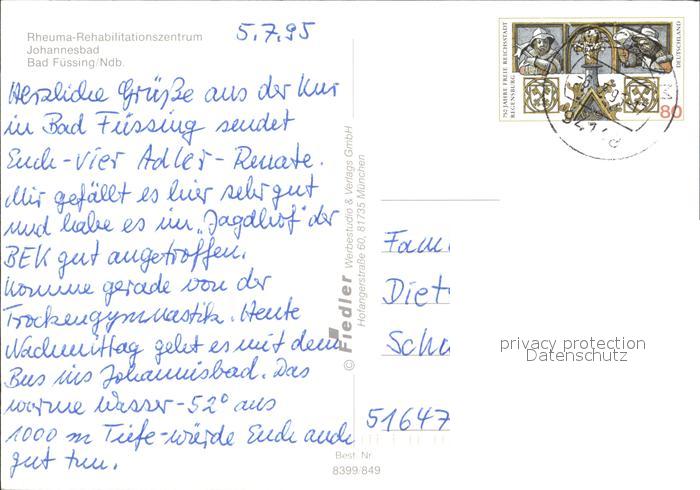 Rheuma-Rehabilitationszentrum
Johannesbad
Bad Füssing/Ndb.
5.7.95
Herzliche Grüße aus der Kur
in Bad Füssing sendet
Euch - vier Adler - Renate.
Mir gefällt es hier sehr gut
und habe es im "Jagdhof" der
BEK gut angetroffen.
Komme gerade von der
Trockengymnastik. Heute
Nachmittag geht es mit dem
Bus ins Johannisbad. Das
warme Wasser - 52° aus
1000 m Tiefe - würde Euch auch
gut tun.
© Fiedler Werbestudio & Verlags GmbH
Hofangerstraße 60, 81735 München
Best. Nr.
8399/849
750 JAHRE FREIE REICHSSTADT
REGENSBURG
DEUTSCHLAND
80
Fam
Diet
Scha
51647
privacy protection
Datenschutz